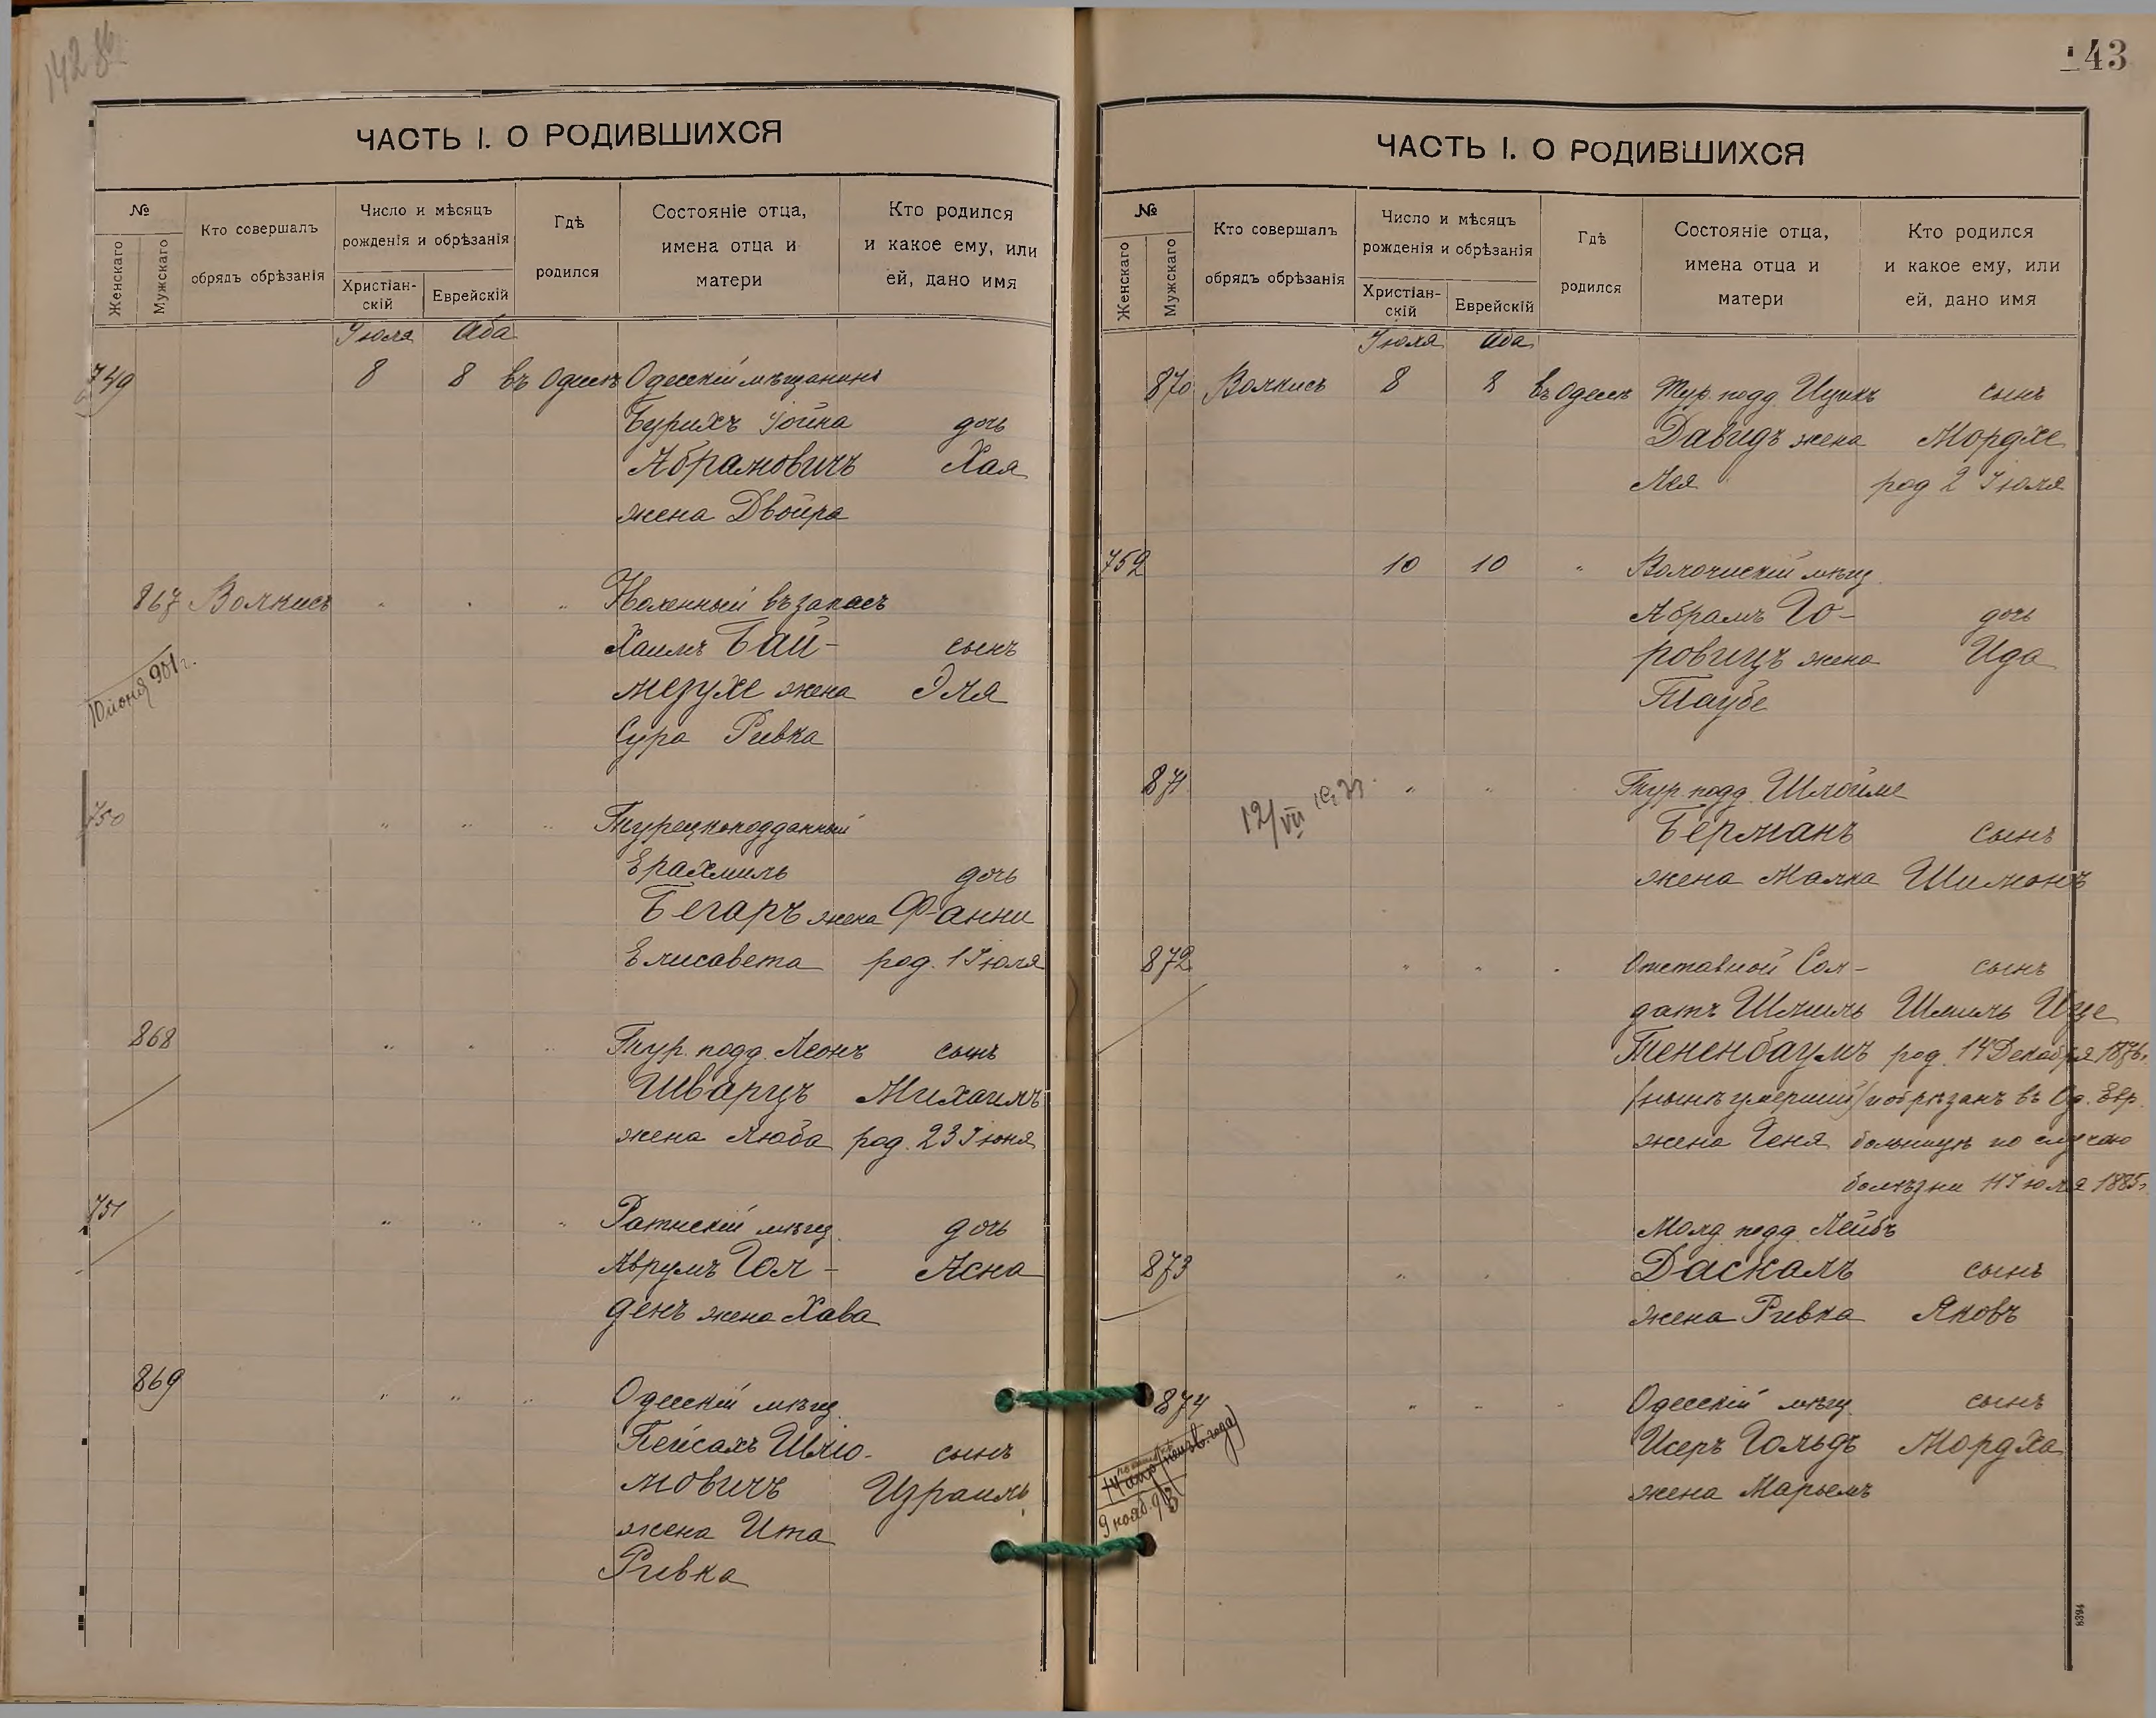 142 об
ЧАСТЬ I. О РОДИВШИХСЯ
№
Женскаго
Мужскаго
Кто совершалъ
обрядъ обрѣзанія
Число и мѣсяцъ
рожденія и обрѣзанія
Христіан-
скій
Еврейскій
Гдѣ
родился
Состояніе отца,
имена отца и
матери
Кто родился
и какое ему, или
ей, дано имя
Іюля Аба
749 8 8 въ Одессѣ Одесскій мѣщанинъ
Бурихъ Іойна дочь
Абрамовичъ Хая
жена Двойра
867 Волкисъ " " "
Хаимъ Бай- сынъ
мезухе жена Эля
Сура Ривка
10 іюня 901 г.
750 " " " Турецкоподданный
Ерахмиль дочь
Бегаръ жена Фанни
Елисавета род. 1 Іюля
868 " " " Тур. подд. Леонъ сынъ
Шварцъ Михаилъ
жена Люба род. 23 Іюня
751 " " " Ратнскій мѣщ. дочь
Аврумъ Гол- Асна
денъ жена Хава
869 " " " Одесскій мѣщ.
Пейсахъ Шліо- сынъ
мовичъ Израиль
жена Ита
Ривка
143
ЧАСТЬ I. О РОДИВШИХСЯ
№
Женскаго
Мужскаго
Кто совершалъ
обрядъ обрѣзанія
Число и мѣсяцъ
рожденія и обрѣзанія
Христіан-
скій
Еврейскій
Гдѣ
родился
Состояніе отца,
имена отца и
матери
Кто родился
и какое ему, или
ей, дано имя
Іюля Аба
870 Волкисъ 8 8 въ Одессѣ Тур. подд. Ицикъ сынъ
Давидъ жена Мордхе
Лея род 2 Іюля
752 10 10 " Волочискій мѣщ.
Абрамъ Го- дочь
ровицъ жена Ида
Таубе
871 " " " Тур. подд. Шлойме
12/VII
Берманъ сынъ
жена Малка Шимонъ
872 " " " Отставной Сол- сынъ
датъ Шмиль Шмиль Ице
Тененбаумъ род. 14 Декабря 1876 г.
/нынѣ умершій/ и обрѣзанъ въ Од. Евр.
жена Геня больницѣ по случаю
болѣзни 11 Іюля 1885 г.
Молд. подд. Лейбъ
873 " " " Даскалъ сынъ
жена Ривка Яковъ
874 " " " Одесскій мѣщ. сынъ
Исеръ Гольдъ Мордха
жена Марьемъ
9 нояб. 913
6394